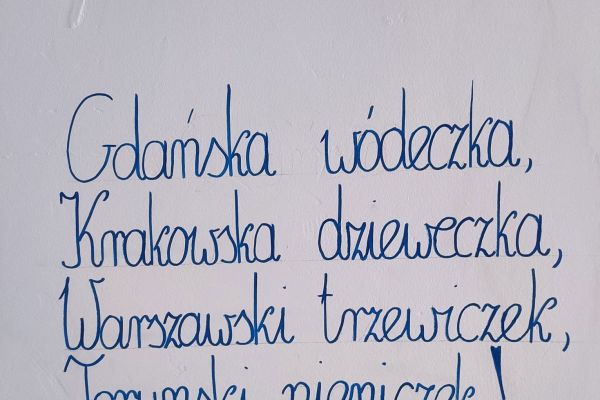 Gdańska wódeczka,
Krakowska dzieweczka,
Warszawski trzewiczek,